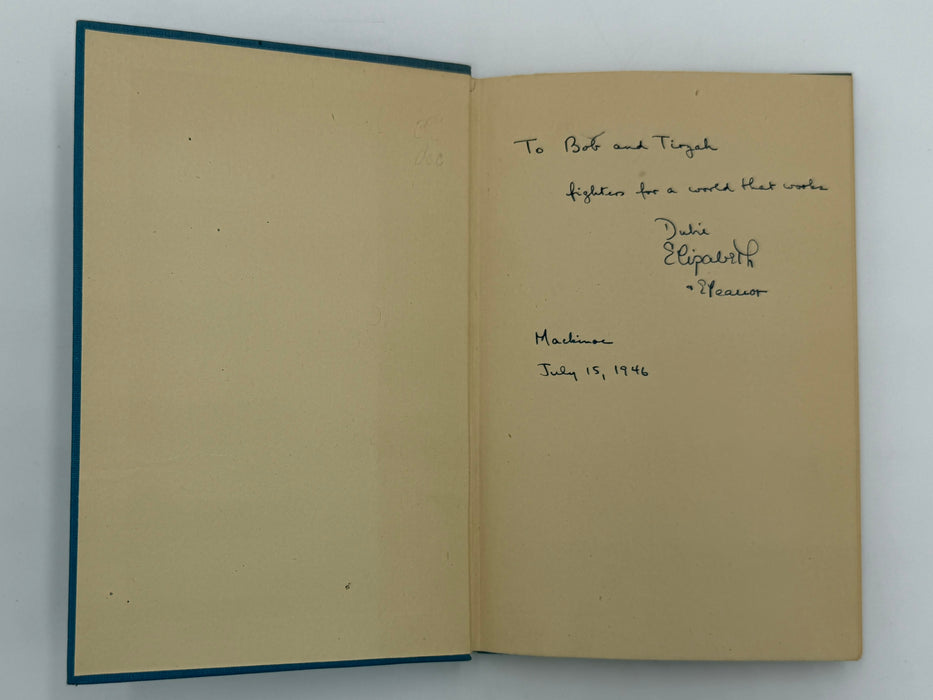 To Bob and Tirzah
fighters for a world that works
Dubie
Elizabeth
+ Eleanor
Mackinac
July 15, 1946